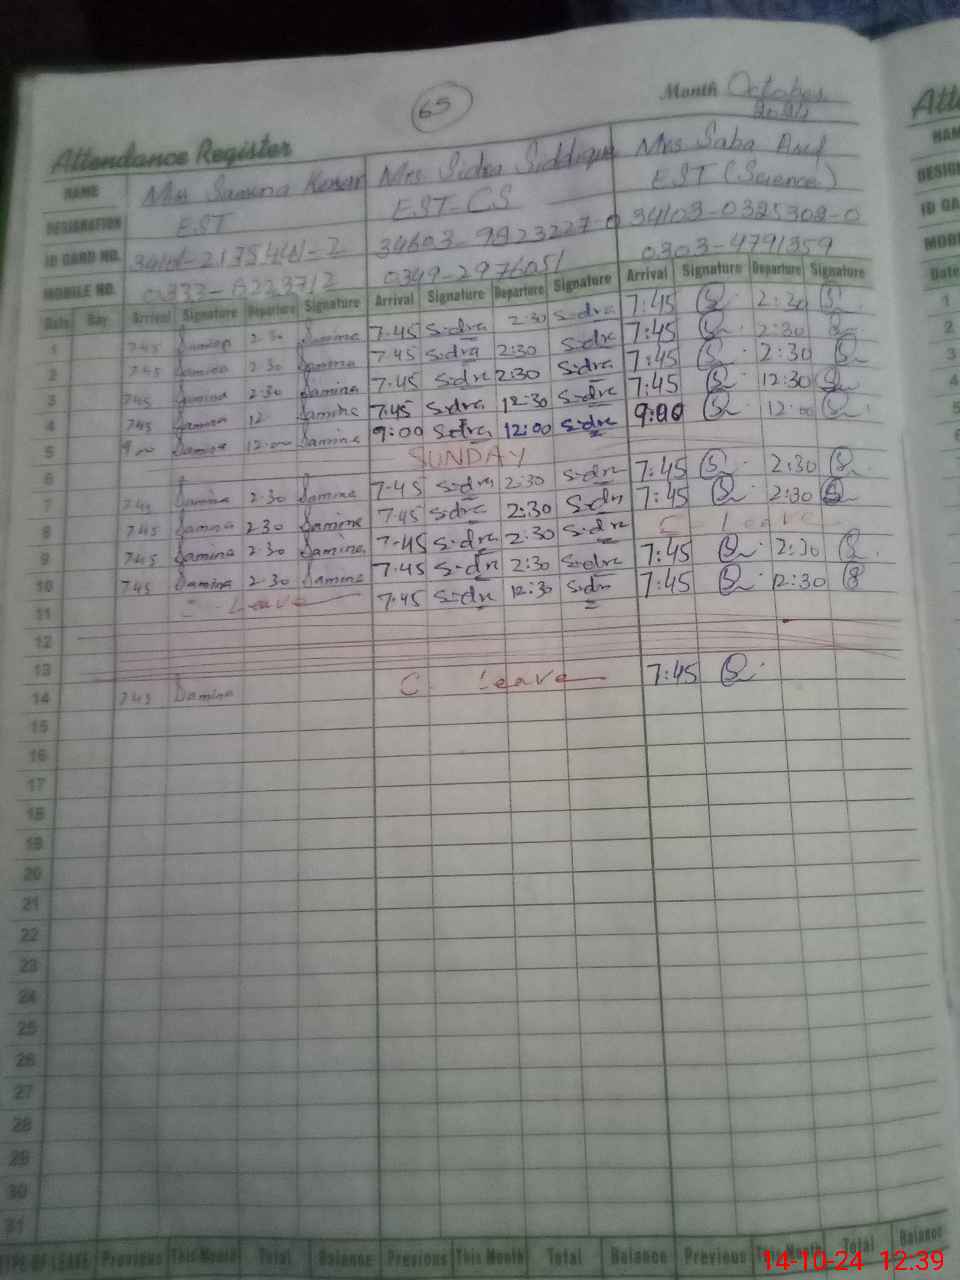 65
Month October
2024
Attendance Register
NAME Miss Samina Kousar Mrs. Sidra Siddique Mrs Saba Arif
DESIGNATION EST EST-CS EST (Science)
ID CARD NO. 34103-0325308-0
MOBILE NO. 0349-2976051 0303-4791359
Date Day Arrival Signature Departure Signature Arrival Signature Departure Signature Arrival Signature Departure Signature
1 7 45 Samina 2 30 Samina 7-45 Sidra 2:30 Sidra 7:45 2:30
2 7 45 Samina 2 30 Samina 7 45 Sidra 2:30 Sidra 7:45 2:30
3 7 45 Samina 2 30 Samina 7-45 Sidra 2:30 Sidra 7:45 2:30
4 7 45 Samina 12 Samina 7:45 Sidra 12:30 Sidra 7:45 12:30
5 9 00 Samina 12:00 Samina 9:00 Sidra 12:00 Sidra 9:00 12:00
6 SUNDAY
7 7 45 Samina 2 30 Samina 7-45 Sidra 2:30 Sidra 7:45 2:30
8 7 45 Samina 2 30 Samina 7:45 Sidra 2:30 Sidra 7:45 2:30
9 7 45 Samina 2 30 Samina 7-45 Sidra 2:30 Sidra C. Leave
10 7 45 Samina 2 30 Samina 7:45 Sidra 2:30 Sidra 7:45 2:30
11 C. Leave 7:45 Sidra 12:30 Sidra 7:45 12:30
12
13
14 7 45 Samina C. Leave 7:45
15
16
17
18
19
20
21
22
23
24
25
26
27
28
29
30
31
TYPE OF LEAVE Previous This Month Total Balance Previous This Month Total Balance Previous This Month Total Balance
14-10-24 12:39